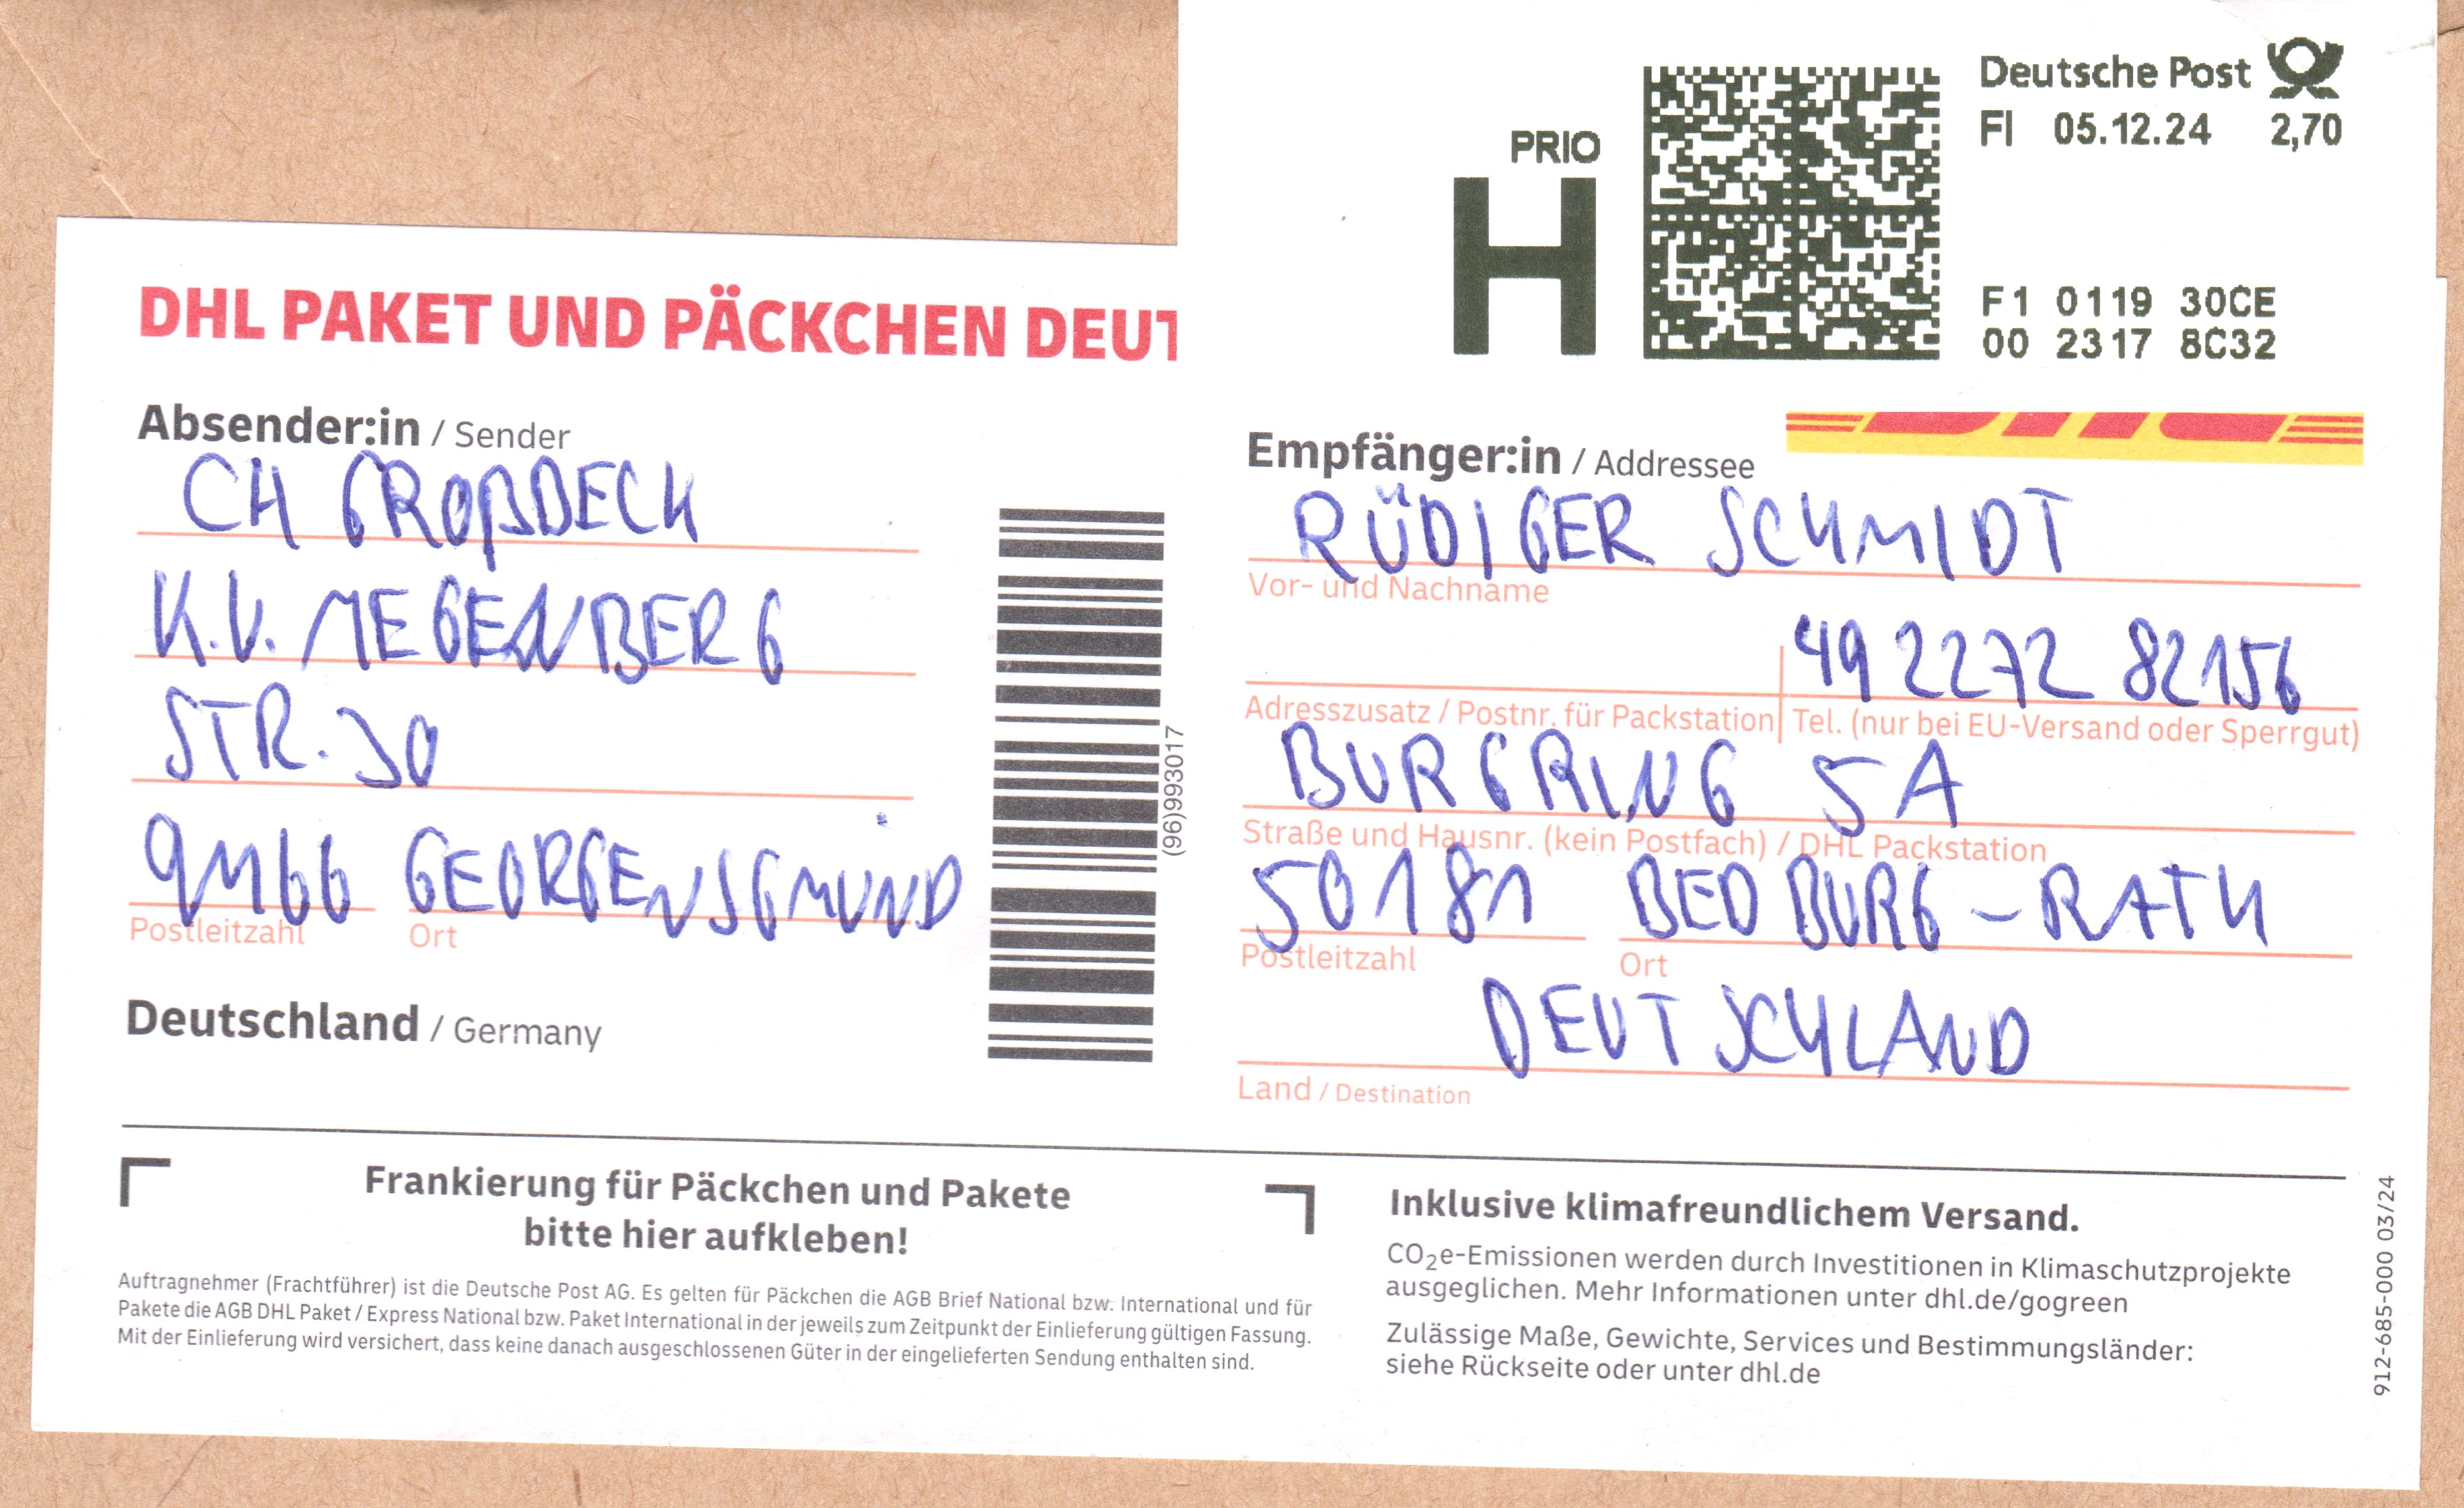 Deutsche Post
FI 05.12.24 2,70
PRIO
H
F1 0119 30CE
00 2317 8C32
DHL PAKET UND PÄCKCHEN DEUT
Absender:in / Sender
CH GROßBECK
K.V. MEGENBERG
STR. 30
91166 GEORGENSGMÜND
Postleitzahl Ort
Deutschland / Germany
(96)993017
Empfänger:in / Addressee
RÜDIGER SCHMIDT
Vor- und Nachname
49 2272 82156
Adresszusatz / Postnr. für Packstation Tel. (nur bei EU-Versand oder Sperrgut)
BURGRING 5A
Straße und Hausnr. (kein Postfach) / DHL Packstation
50181 BEDBURG-RATH
Postleitzahl Ort
DEUTSCHLAND
Land / Destination
Frankierung für Päckchen und Pakete
bitte hier aufkleben!
Auftragnehmer (Frachtführer) ist die Deutsche Post AG. Es gelten für Päckchen die AGB Brief National bzw. International und für
Pakete die AGB DHL Paket / Express National bzw. Paket International in der jeweils zum Zeitpunkt der Einlieferung gültigen Fassung.
Mit der Einlieferung wird versichert, dass keine danach ausgeschlossenen Güter in der eingelieferten Sendung enthalten sind.
Inklusive klimafreundlichem Versand.
CO₂e-Emissionen werden durch Investitionen in Klimaschutzprojekte
ausgeglichen. Mehr Informationen unter dhl.de/gogreen
Zulässige Maße, Gewichte, Services und Bestimmungsländer:
siehe Rückseite oder unter dhl.de
912-685-000 03/24